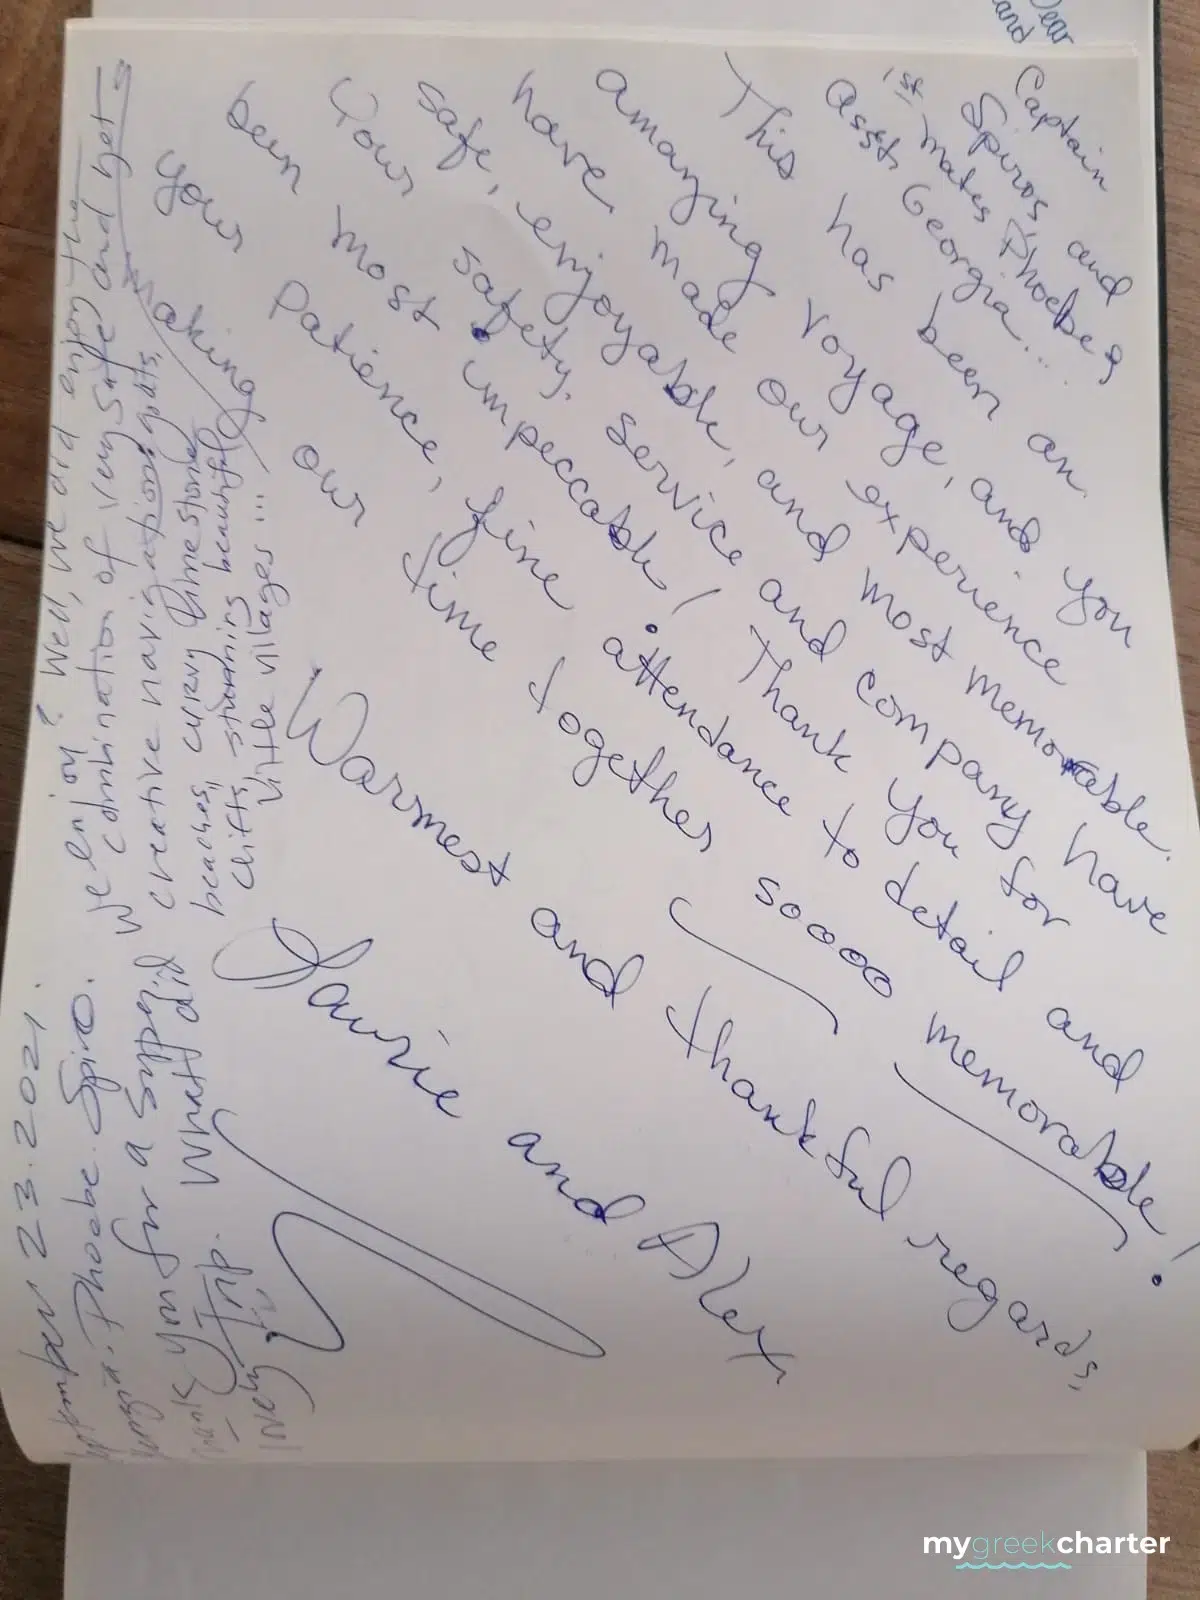 Dear
and
Captain
Spiros, and
1st mates Phoebe &
asst. Georgia...
This has been an
amazing voyage, and you
have made our experience
safe, enjoyable, and most memorable.
Your safety, service and company have
been most impeccable! Thank you for
your patience, fine attendance to detail and
making our time together soooo memorable!
Warmest and thankful regards,
Laurie and Alex
September 23.2021.
Georgia. Phoebe. Spiro.
Thank you for a super
lovely trip. What did
we enjoy? Well, we did enjoy the
combination of very safe and yet
creative navigation
beaches, curvy limestone
cliffs, stunning beautiful
little villages...
mygreekcharter